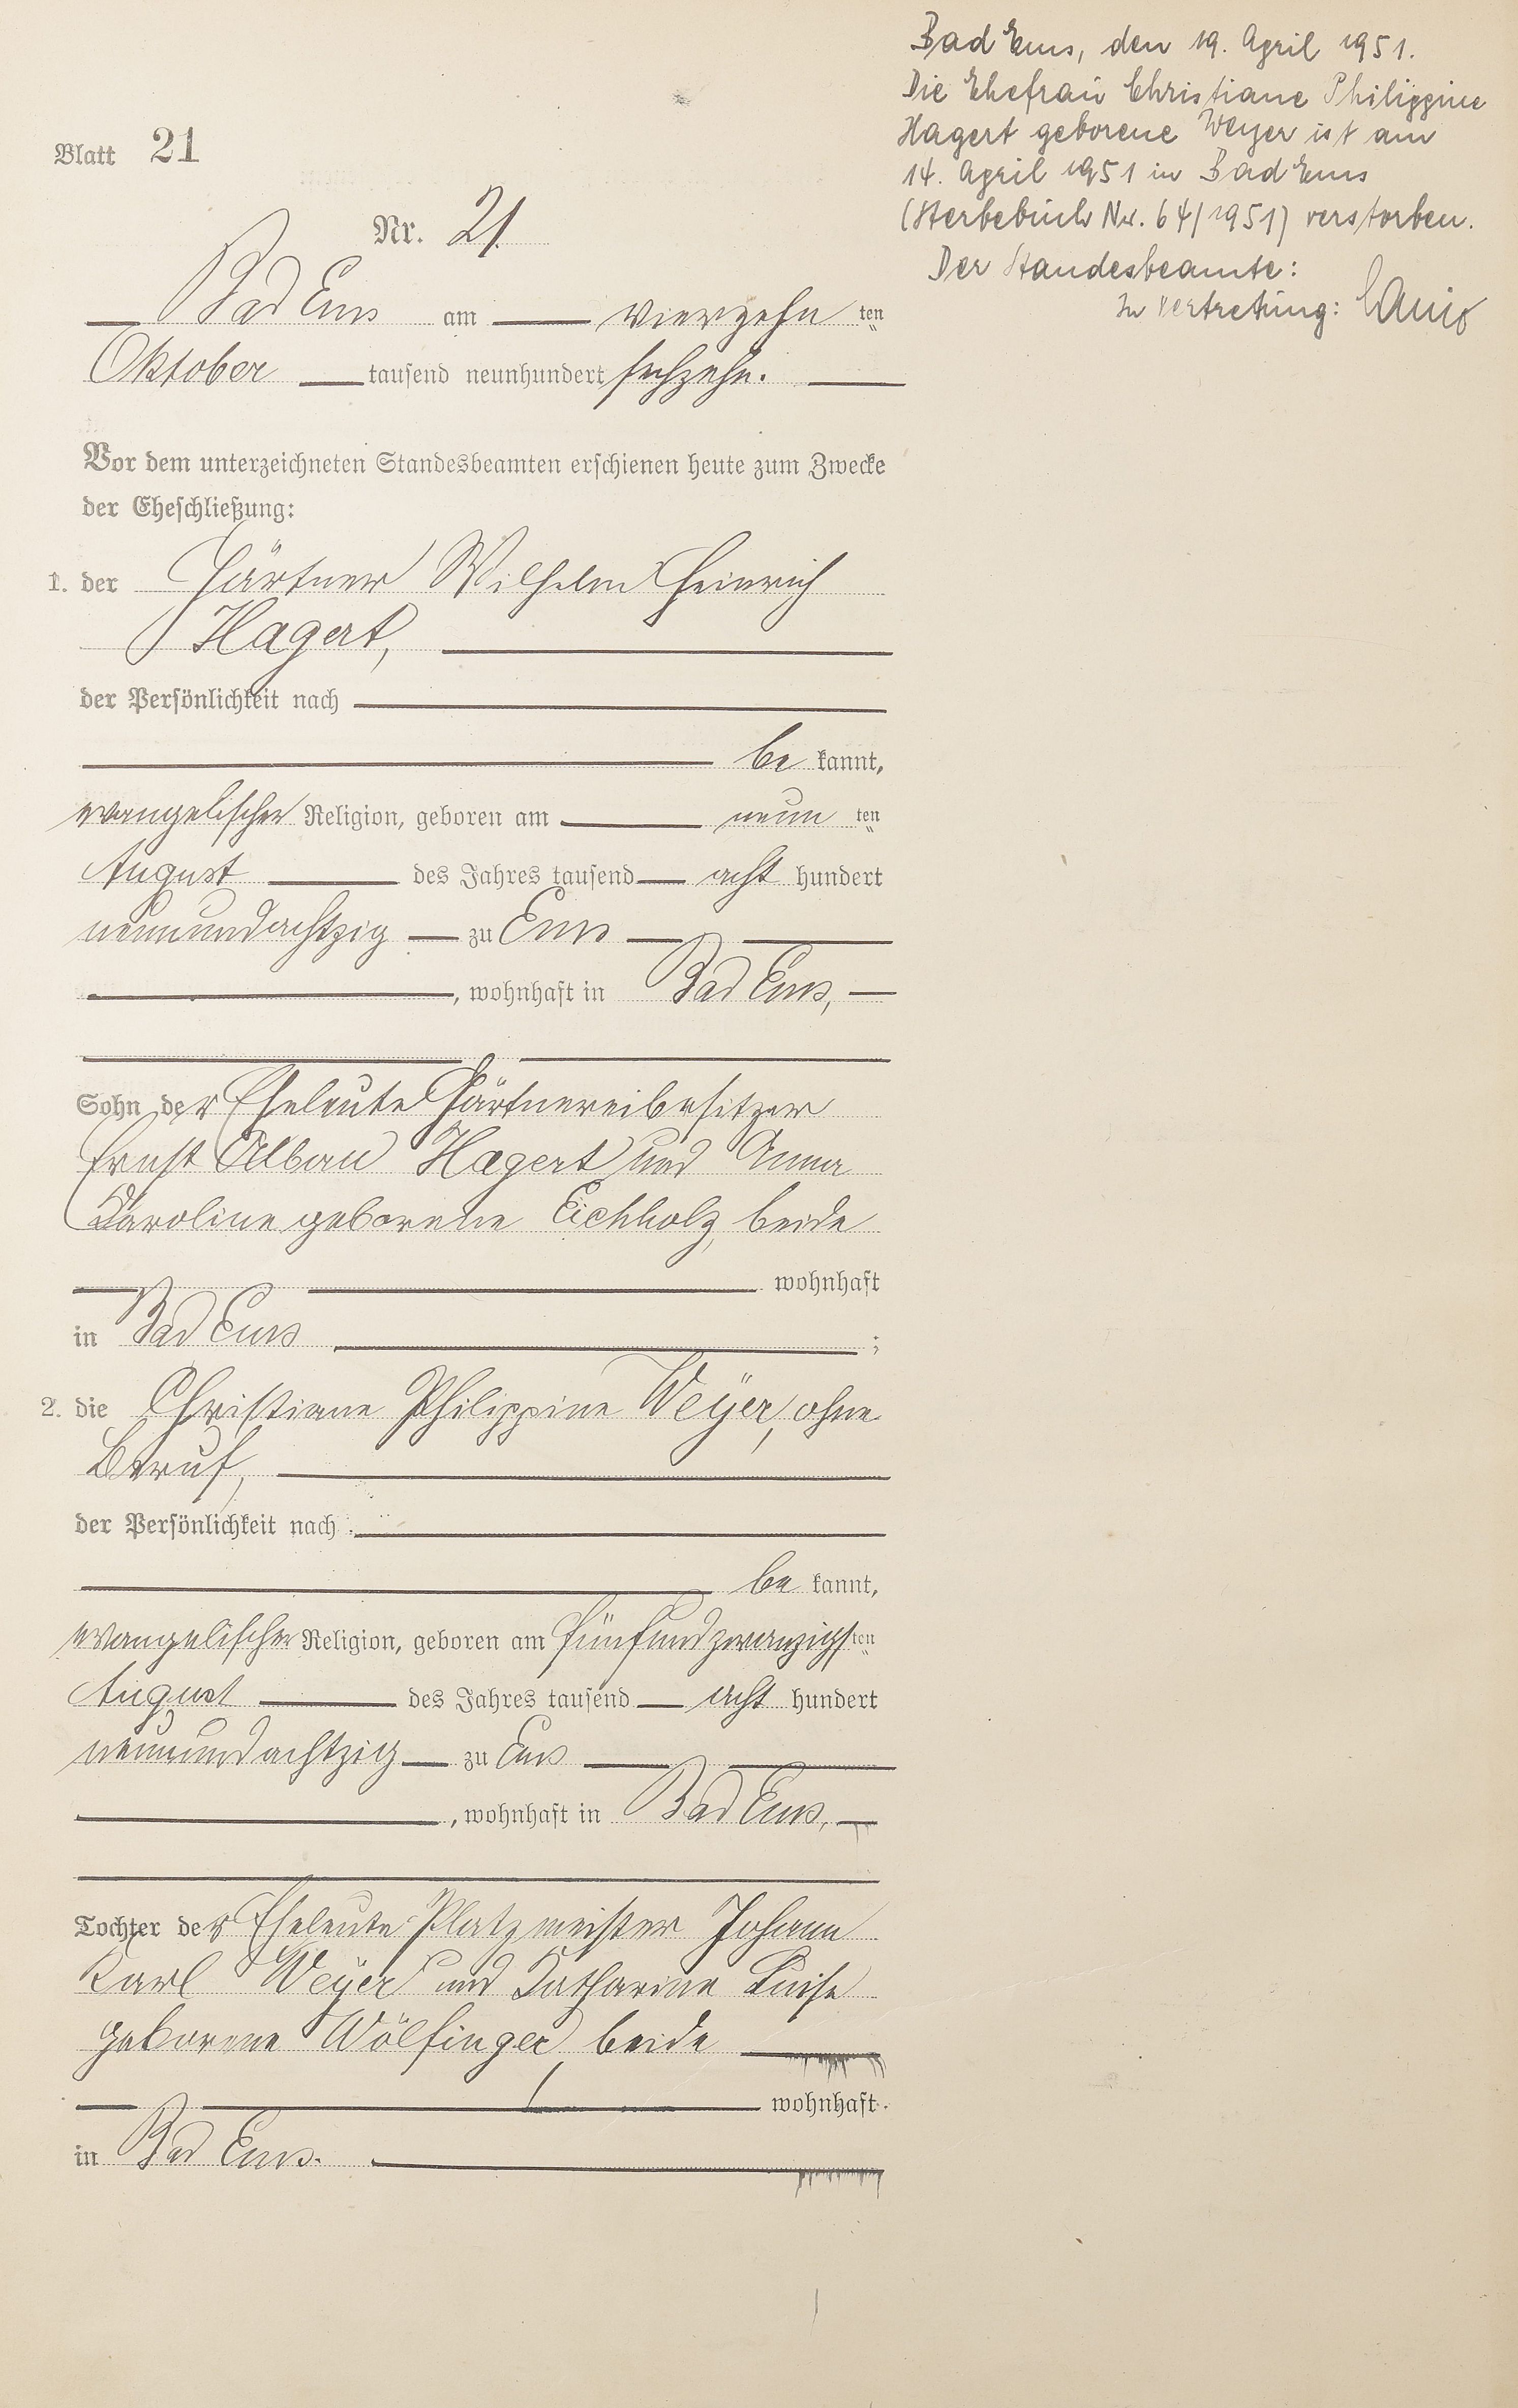 Bad Ems, den 19. April 1951.
Die Ehefrau Christiane Philippine
Hagert geborene Weyer ist am
14. April 1951 in Bad Ems
(Sterbebuch Nr. 64/1951) verstorben.
Der Standesbeamte:
In Vertretung:
Blatt 21
Nr. 21.
Bad Ems am vierzehn ten
Oktober tausend neunhundert sechzehn.
Vor dem unterzeichneten Standesbeamten erschienen heute zum Zwecke
der Eheschließung:
1. der Gärtner Wilhelm Heinrich
Hagert,
der Persönlichkeit nach
be kannt,
evangelischer Religion, geboren am neun ten
August des Jahres tausend acht hundert
neunundachtzig zu Ems
, wohnhaft in Bad Ems,
Sohn der Eheleute Gärtnereibesitzer
Ernst Alban Hagert und Anna
Karoline geborene Eichholz, beide
wohnhaft
in Bad Ems ;
2. die Christiane Philippine Weyer, ohne
Beruf,
der Persönlichkeit nach
be kannt,
evangelischer Religion, geboren am fünfundzwanzigsten
August des Jahres tausend acht hundert
neunundachtzig zu Ems
, wohnhaft in Bad Ems,
Tochter der Eheleute Platzmeister Johann
Karl Weyer und Katharina Luise
geborene Wölfinger, beide
wohnhaft
in Bad Ems.